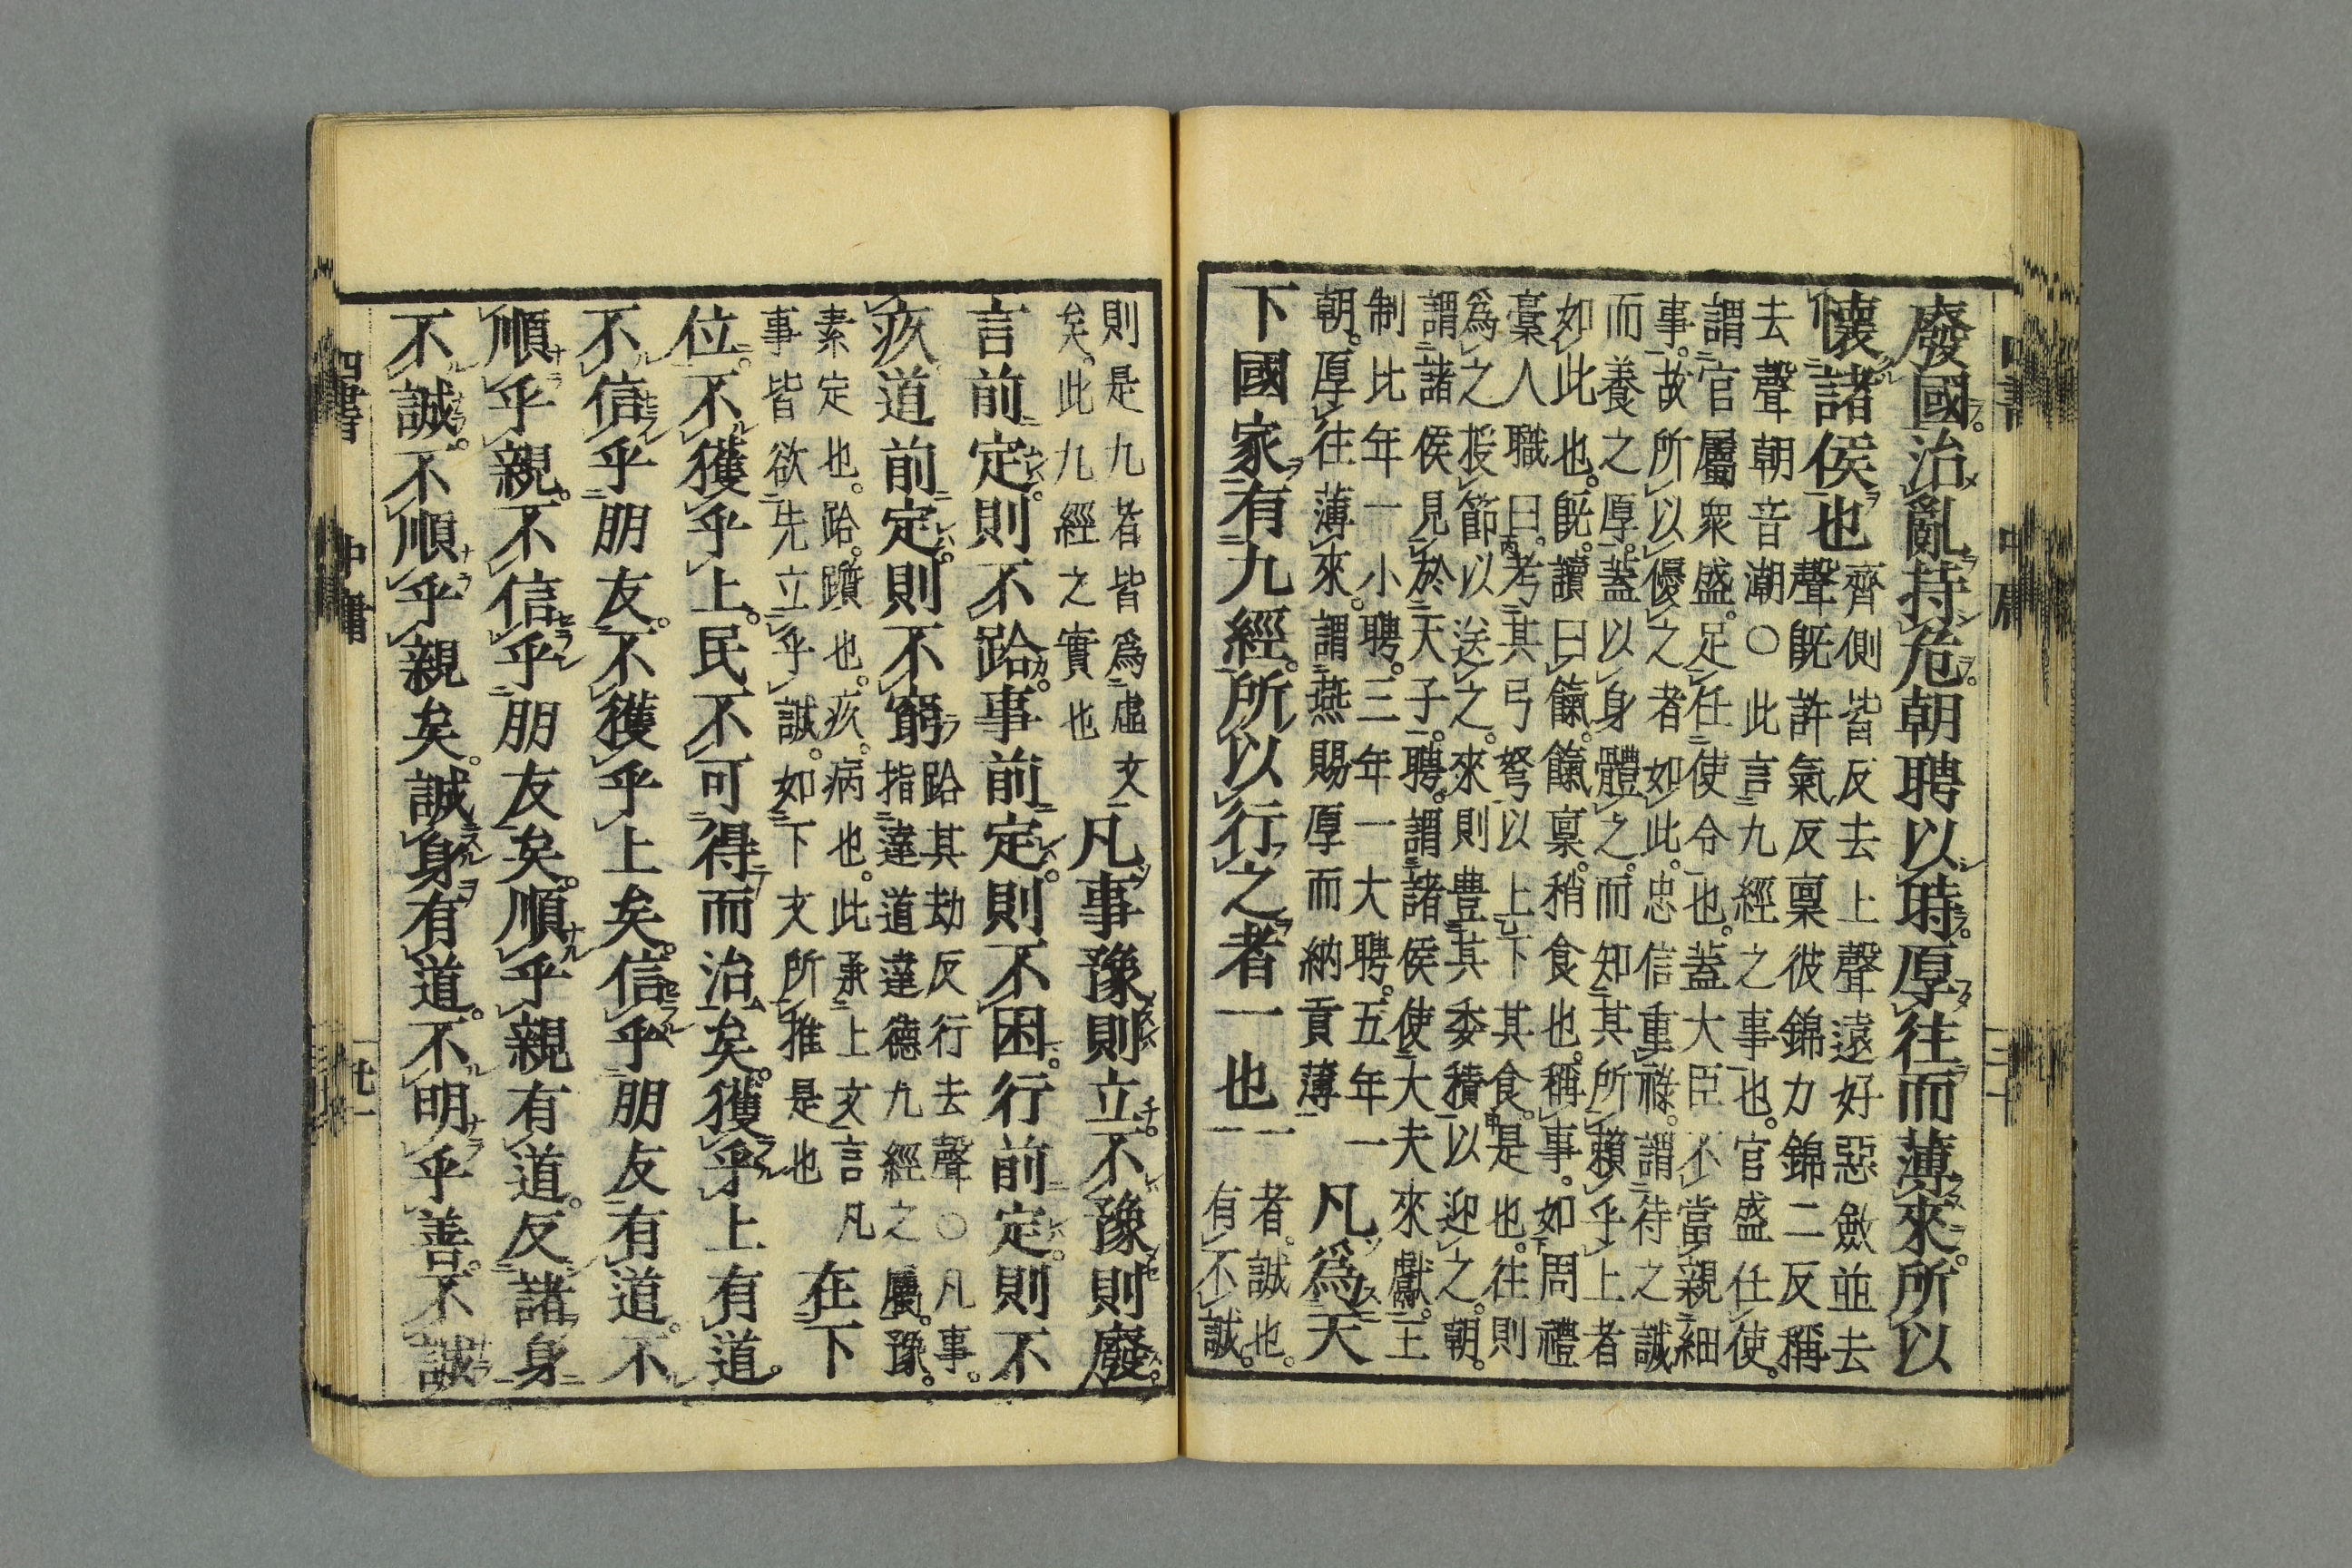 廢國。治亂持危。朝聘以時。厚往而薄來。所以
懷諸侯也
齊側皆反去上聲遠好惡斂並去
聲旣許氣反稟彼錦力錦二反稱
去聲朝音潮○此言九經之事也。官盛任使。
謂官屬衆盛。足任使令也。蓋大臣不當親細
事。故所以優之者如此。忠信重祿。謂待之誠
而養之厚。蓋以身體之。而知其所賴乎上者
如此也。旣。讀曰餼。餼稟。稍食也。稱事。如周禮
稾人職曰。考其弓弩以上下其食。是也。往則
爲之授節以送之。來則豊其委積以迎之。朝。
謂諸侯見於天子。聘。謂諸侯使大夫來獻。王
制比年一小聘。三年一大聘。五年一
朝。厚往薄來。謂燕賜厚而納貢薄
凡爲天
下國家有九經。所以行之者一也
一者。誠也。
一有不誠。
則是九者皆爲虛文
矣。此九經之實也
凡事豫則立。不豫則廢。
言前定。則不跲。事前定。則不困。行前定。則不
疚。道前定。則不窮
跲其劫反行去聲○凡事。
指達道達德九經之屬。豫。
素定也。跲。躓也。疚。病也。此承上文言凡
事皆欲先立乎誠。如下文所推是也
在下
位。不獲乎上。民不可得而治矣。獲乎上有道。
不信乎朋友。不獲乎上矣。信乎朋友有道。不
順乎親。不信乎朋友矣。順乎親有道。反諸身
不誠。不順乎親矣。誠身有道。不明乎善。不誠
四書
中庸
三十
四書
中庸